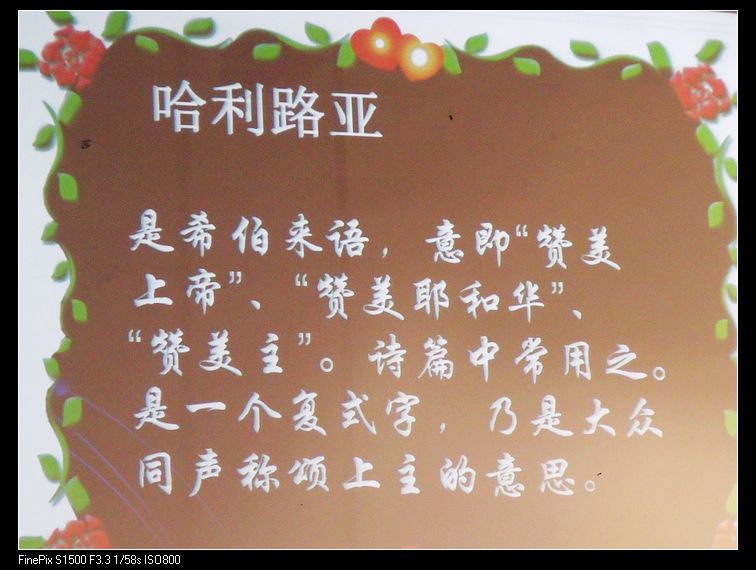 哈利路亚
是希伯来语，意即“赞美
上帝”、“赞美耶和华”、
“赞美主”。诗篇中常用之。
是一个复式字，乃是大众
同声称颂上主的意思。
FinePix S1500 F3.3 1/58s ISO800